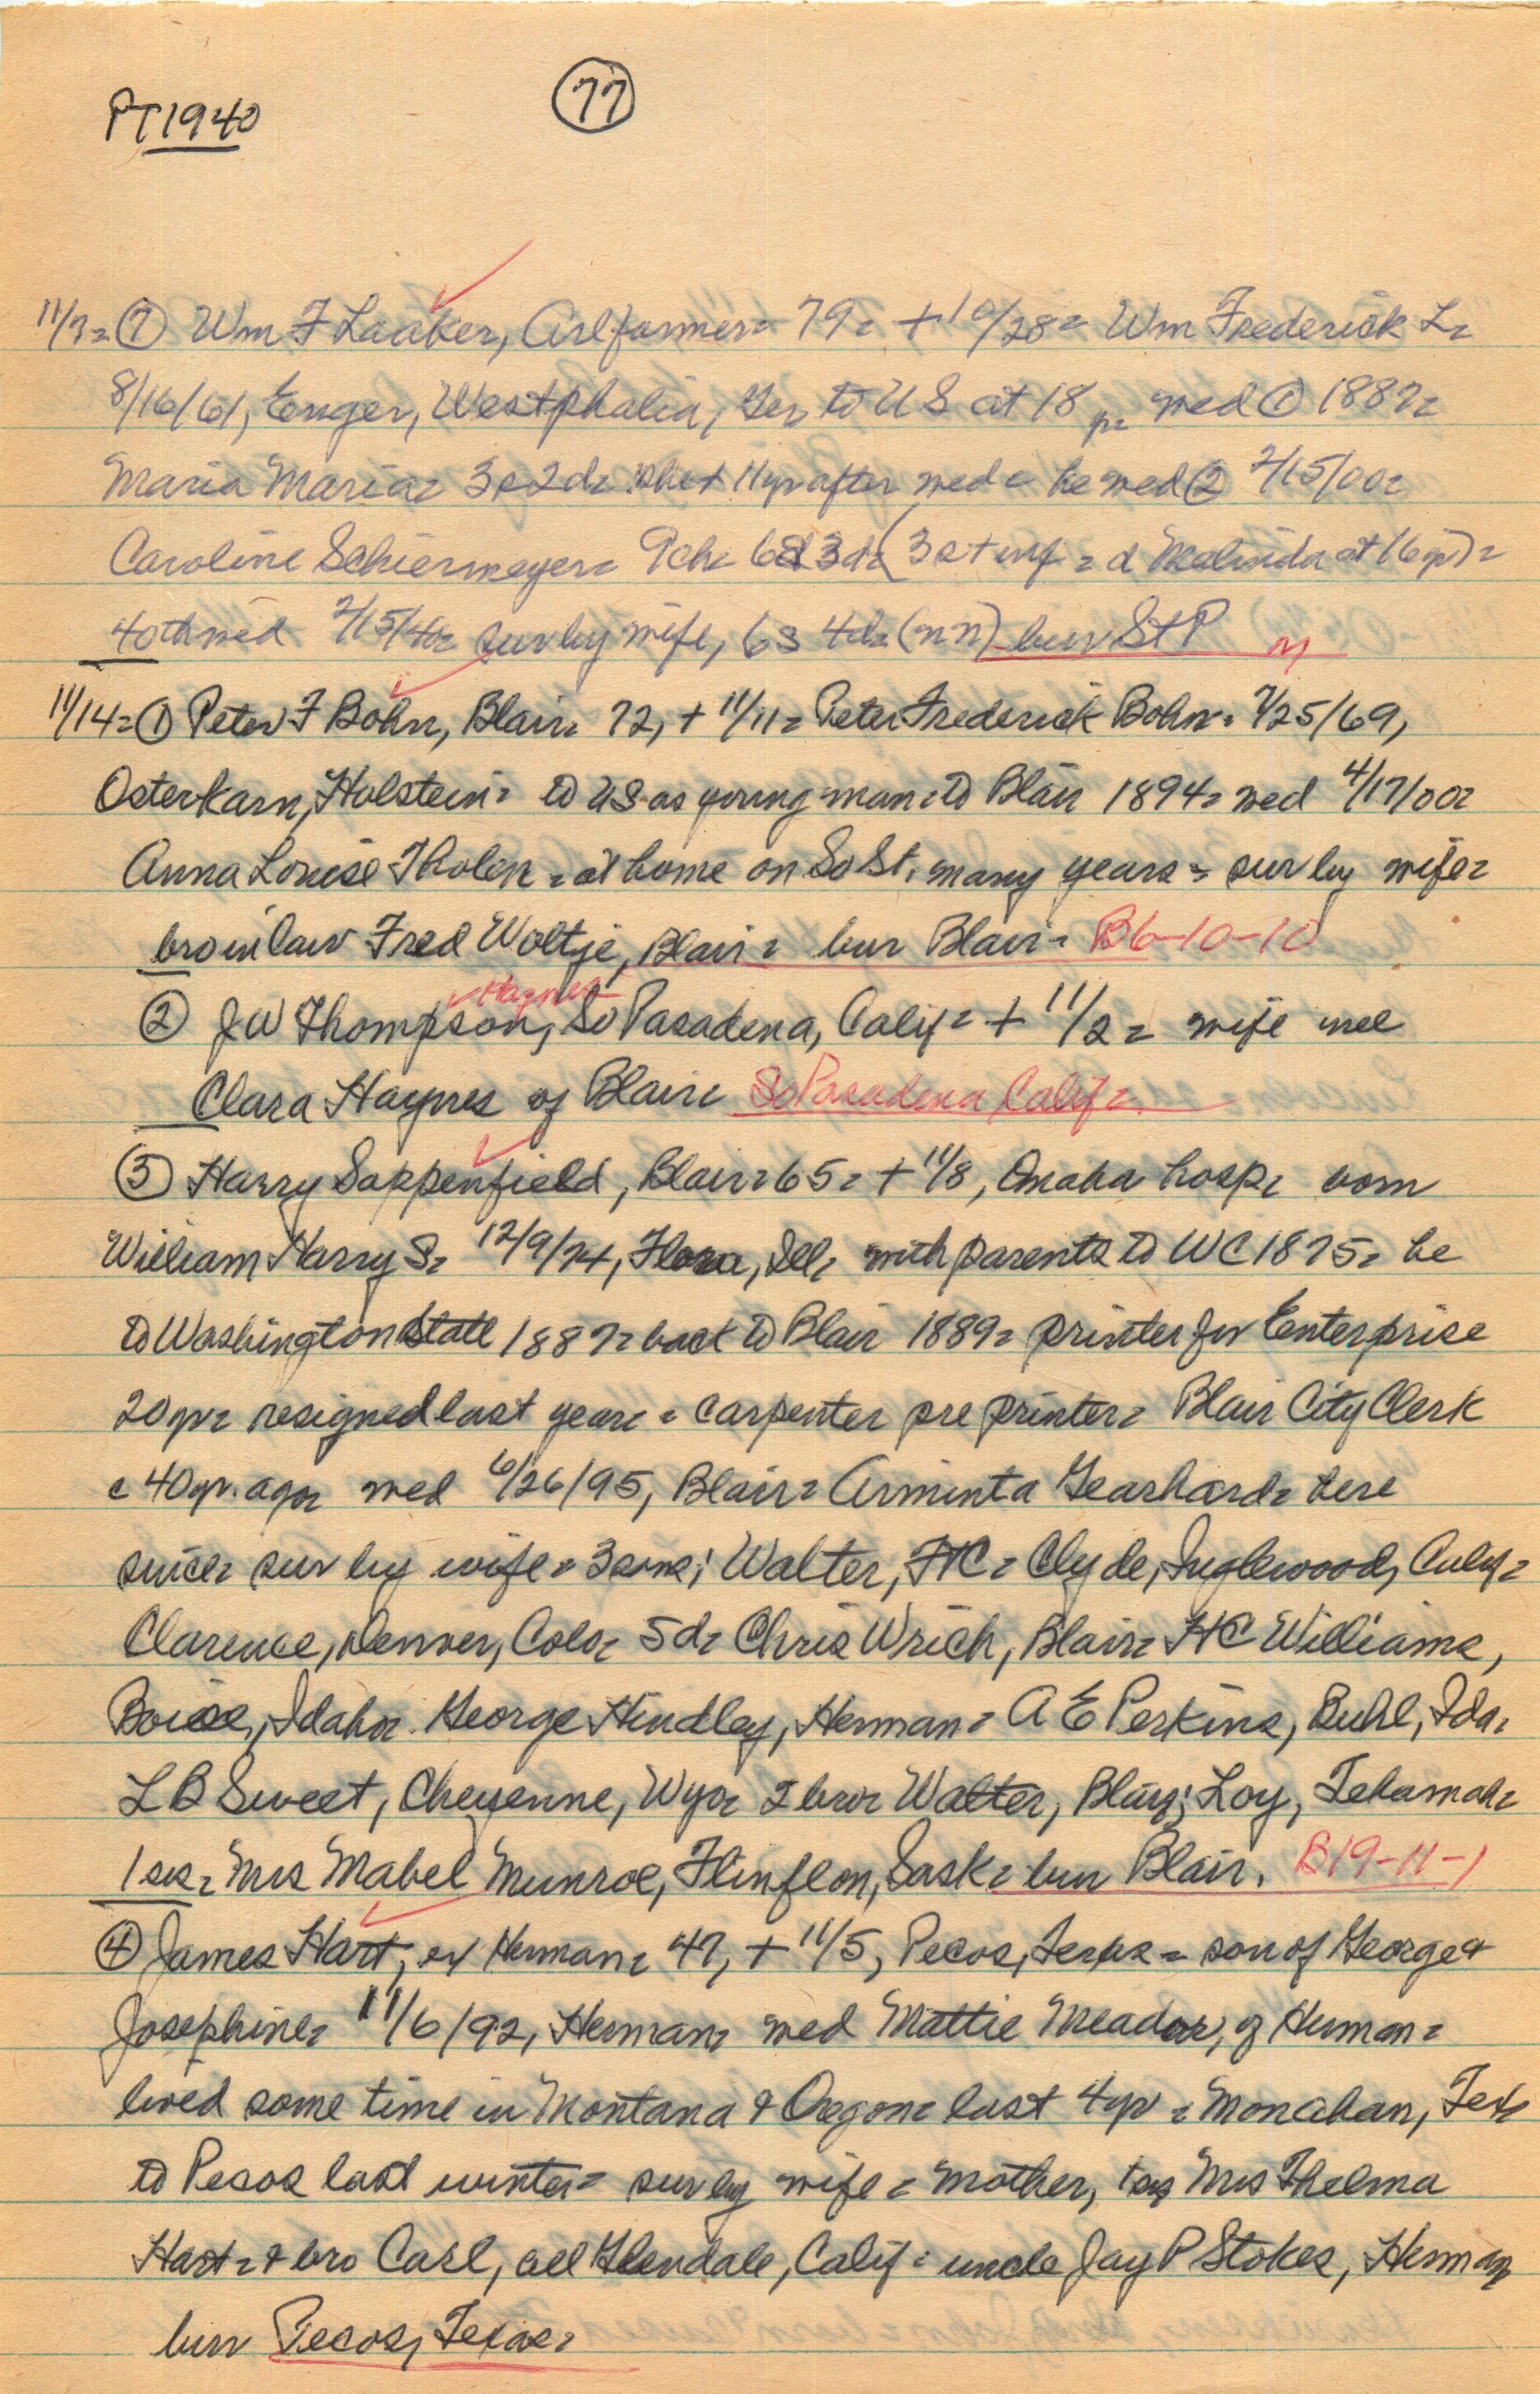 PT 1940
77
11/7= ⑦ Wm F Laaker, Arl farmer= 79= + 10/28= Wm Frederick L=
8/16/61, Enger, Westphalia, Ger to US at 18 yr= wed ① 1887=
Maria Maria= 3s 2d= she + 11 yr after wed= he wed ② 2/15/00=
Caroline Schiermeyer= 9ch= 6s 3d= (3s + inf = d Malinda at 16 yr)=
40th wed 2/15/40= sur by wife, 6s 4d= (nn) bur St P M
11/14= ① Peter F Bohn, Blair= 72, + 11/11= Peter Frederick Bohn= 7/25/69,
Osterkarn, Holstein= to US as young man= to Blair 1894= wed 4/17/00=
Anna Louise Tholen= at home on So St. many years= sur by wife=
bro in law Fred Woltje, Blair= bur Blair= B6-10-10
Haynes
② J W Thompson, So Pasadena, Calif= + 11/2= wife nee
Clara Haynes of Blair= So Pasadena Calif=
③ Harry Sappenfield, Blair= 65= + 11/8, Omaha hosp= born
William Harry S= 12/9/74, Flora, Ill= with parents to WC 1875= he
to Washington State 1887= back to Blair 1889= printer for Enterprise
20 yr= resigned last year= carpenter pre printer= Blair City Clerk
c 40 yr. ago= wed 6/26/95, Blair= Arminta Gearhard= here
since= sur by wife= 3 sons; Walter, FC= Clyde, Inglewood, Calif=
Clarence, Denver, Colo= 5d= Chris Wrich, Blair= HC Williams,
Boise, Idaho= George Hindley, Herman= A E Perkins, Buhl, Ida=
L B Sweet, Cheyenne, Wyo= 2 bro= Walter, Blair; Loy, Tekamah=
1 sis= Mrs Mabel Munroe, Flinflon, Sask= bur Blair. B19-11-1
④ James Hart, ex Herman= 47, + 11/5, Pecos, Texas= son of George &
Josephine= 11/6/92, Herman= wed Mattie Meador, of Herman=
lived some time in Montana & Oregon= last 4 yr = Monahan, Tex
to Pecos last winter= sur by wife= mother, sis Mrs Thelma
Hart= & bro Carl, all Glendale, Calif= uncle Jay P Stokes, Herman
bur Pecos, Texas=